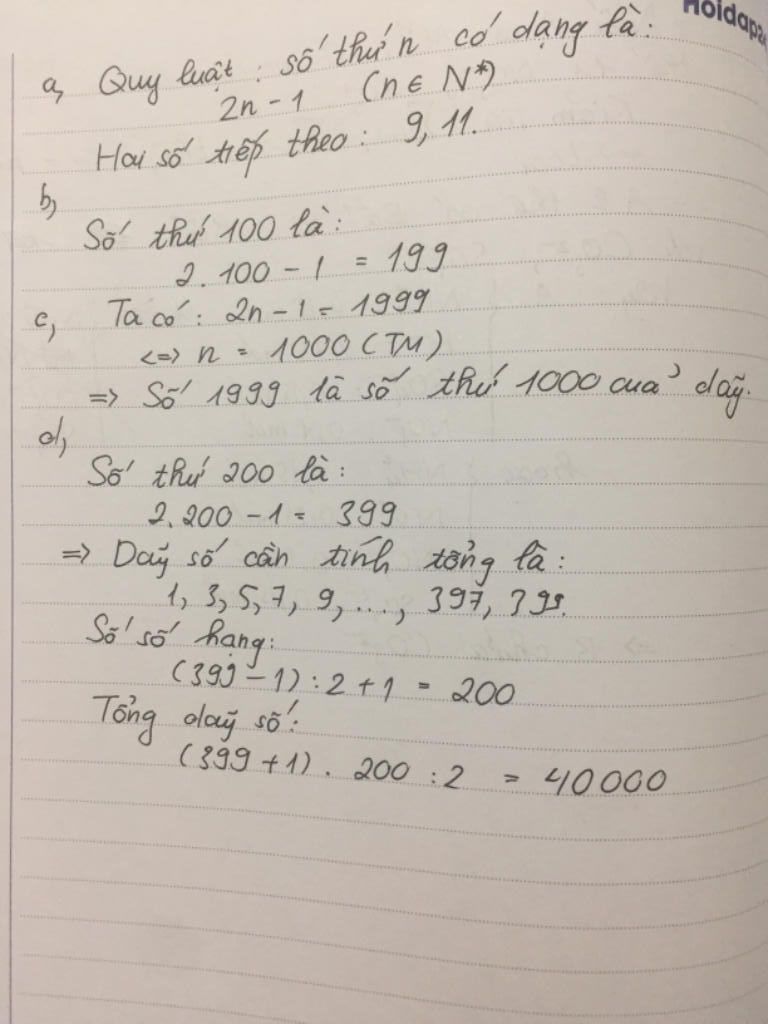 Hoidap2
a, Quy luật : số thứ n có dạng là:
2n - 1 (n ∈ N*)
Hai số tiếp theo: 9, 11.
b,
Số thứ 100 là:
2. 100 - 1 = 199
c, Ta có: 2n - 1 = 1999
<=> n = 1000 (TM)
=> Số 1999 là số thứ 1000 của dãy.
d,
Số thứ 200 là:
2. 200 - 1 = 399
=> Dãy số cần tính tổng là:
1, 3, 5, 7, 9, ..., 397, 399.
Số số hạng:
(399 - 1) : 2 + 1 = 200
Tổng dãy số:
(399 + 1) . 200 : 2 = 40000